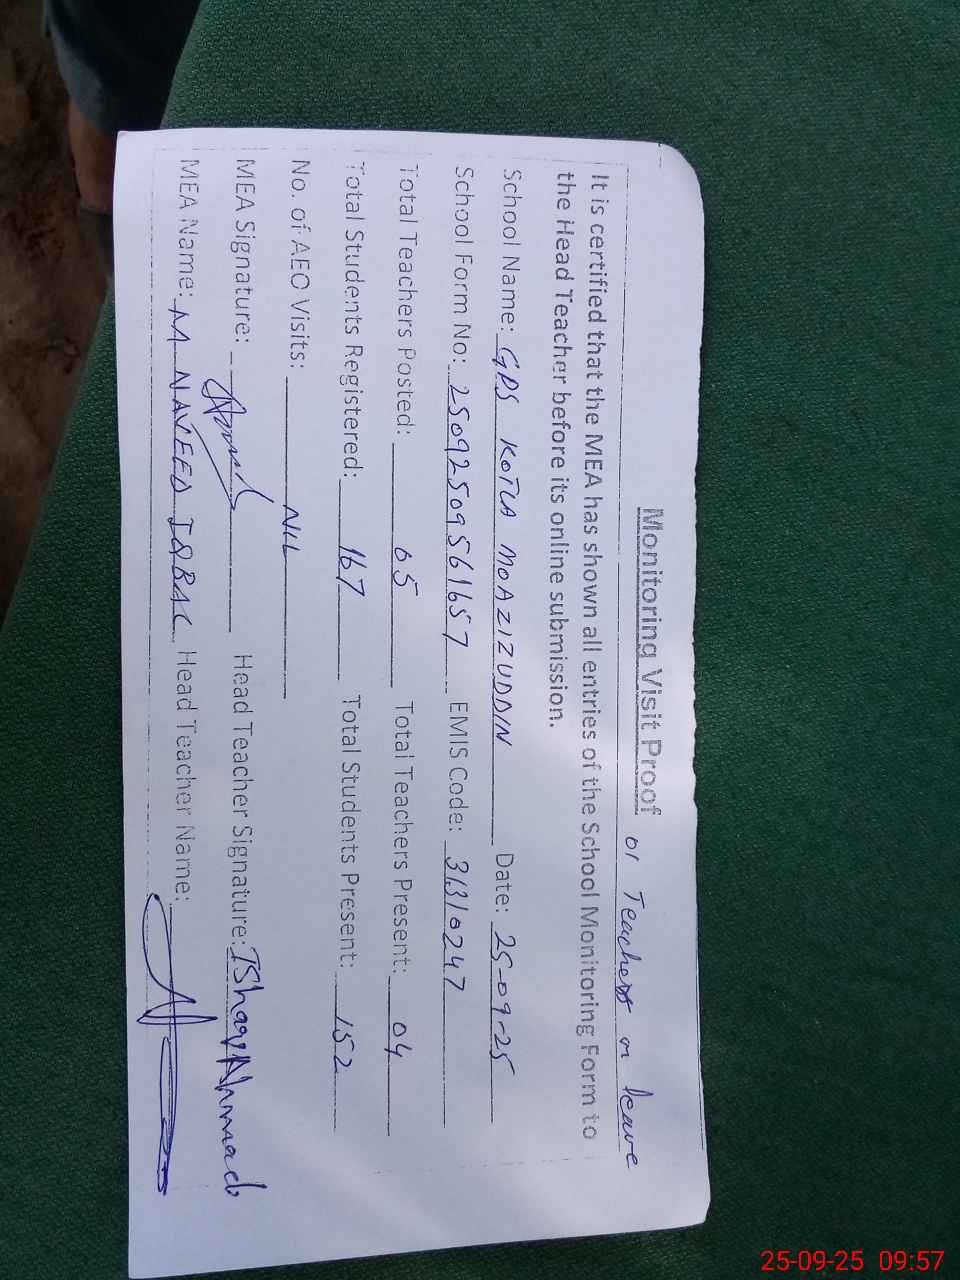 Monitoring Visit Proof 01 Teachers on leave
It is certified that the MEA has shown all entries of the School Monitoring Form to
the Head Teacher before its online submission.
School Name: GPS KOTLA MOAZIZUDDIN Date: 25-09-25
School Form No: 25092509561657 EMIS Code: 31310247
Total Teachers Posted: 05 Total Teachers Present: 04
Total Students Registered: 167 Total Students Present: 152
No. of AEO Visits: NIL
MEA Signature: Head Teacher Signature: Ahmad
MEA Name: M NAVEED IQBAL Head Teacher Name:
25-09-25 09:57